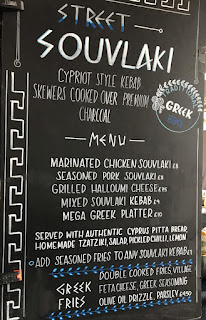 STREET
SOUVLAKI
CYPRIOT STYLE KEBAB
SKEWERS COOKED OVER PREMIUM
CHARCOAL
GREEK
MENU
MARINATED CHICKEN SOUVLAKI £8
SEASONED PORK SOUVLAKI £8
GRILLED HALLOUMI CHEESE
MIXED SOUVLAKI KEBAB £9
MEGA GREEK PLATTER £10
SERVED WITH AUTHENTIC CYPRUS PITTA BREAD,
HOMEMADE TZATZIKI, SALAD, PICKLED CHILLI, LEMON
ADD SEASONED FRIES TO ANY SOUVLAKI KEBAB
GREEK FRIES
DOUBLE COOKED FRIES, VILLAGE
FETA CHEESE, GREEK SEASONING
OLIVE OIL DRIZZLE, PARSLEY £4.50